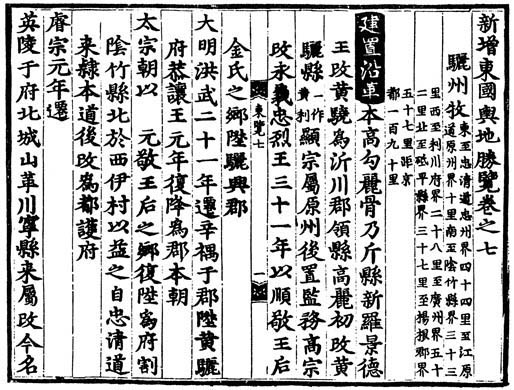 新增東國輿地勝覽卷之七
驪州牧
東至忠清道忠州界四十四里至江原
道原州界十里南至陰竹縣界三十三
里西至利川府界二十八里至廣州界五十
二里北至砥平縣界三十七里至楊根郡界
五十七里距京
都一百九十里
建置沿革 本高勾麗骨乃斤縣新羅景德
王改黃驍為沂川郡領縣高麗初改黃
驪縣一作黃利顯宗屬原州後置監務高宗
改永義忠烈王三十一年以順敬王后
東覽七 一
金氏之鄉陞驪興郡
大明洪武二十一年遷辛禑于郡陞黃驪
府恭讓王元年復降為郡本朝
太宗朝以 元敬王后之鄉復陞為府割
陰竹縣北於西伊村以益之自忠清道
來隸本道後改為都護府
睿宗元年遷
英陵于府北城山革川寧縣來屬改今名